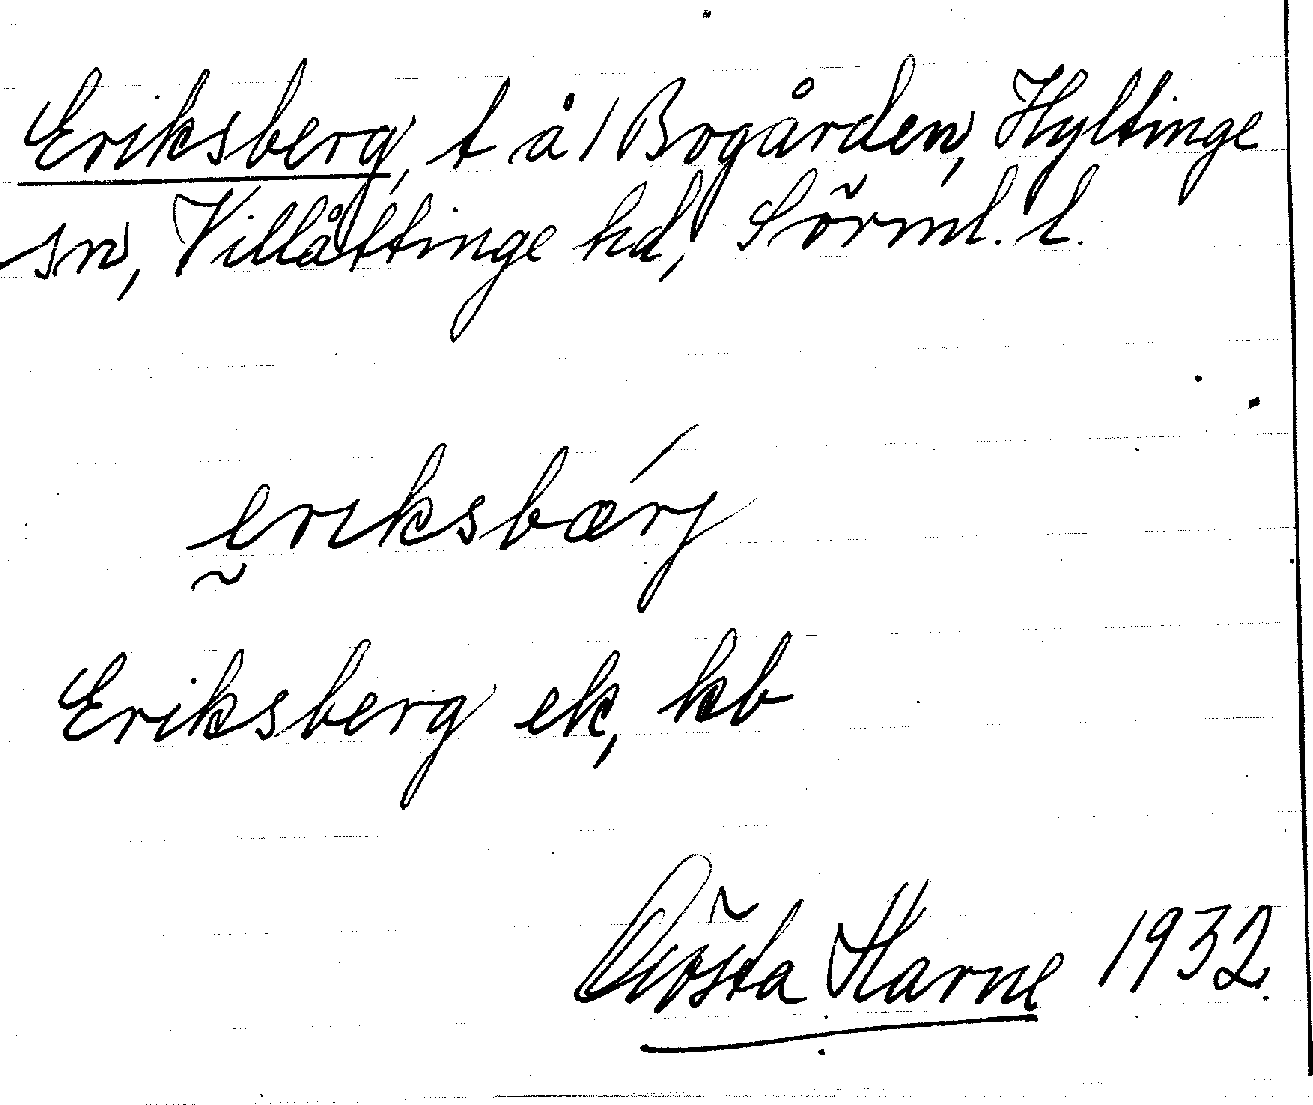 Eriksberg, t å / Bogården, Hyltinge
sn, Villåttinge hd, Sörml. l.
eriksbærj
Eriksberg ek, kb
Gösta Harne 1932.